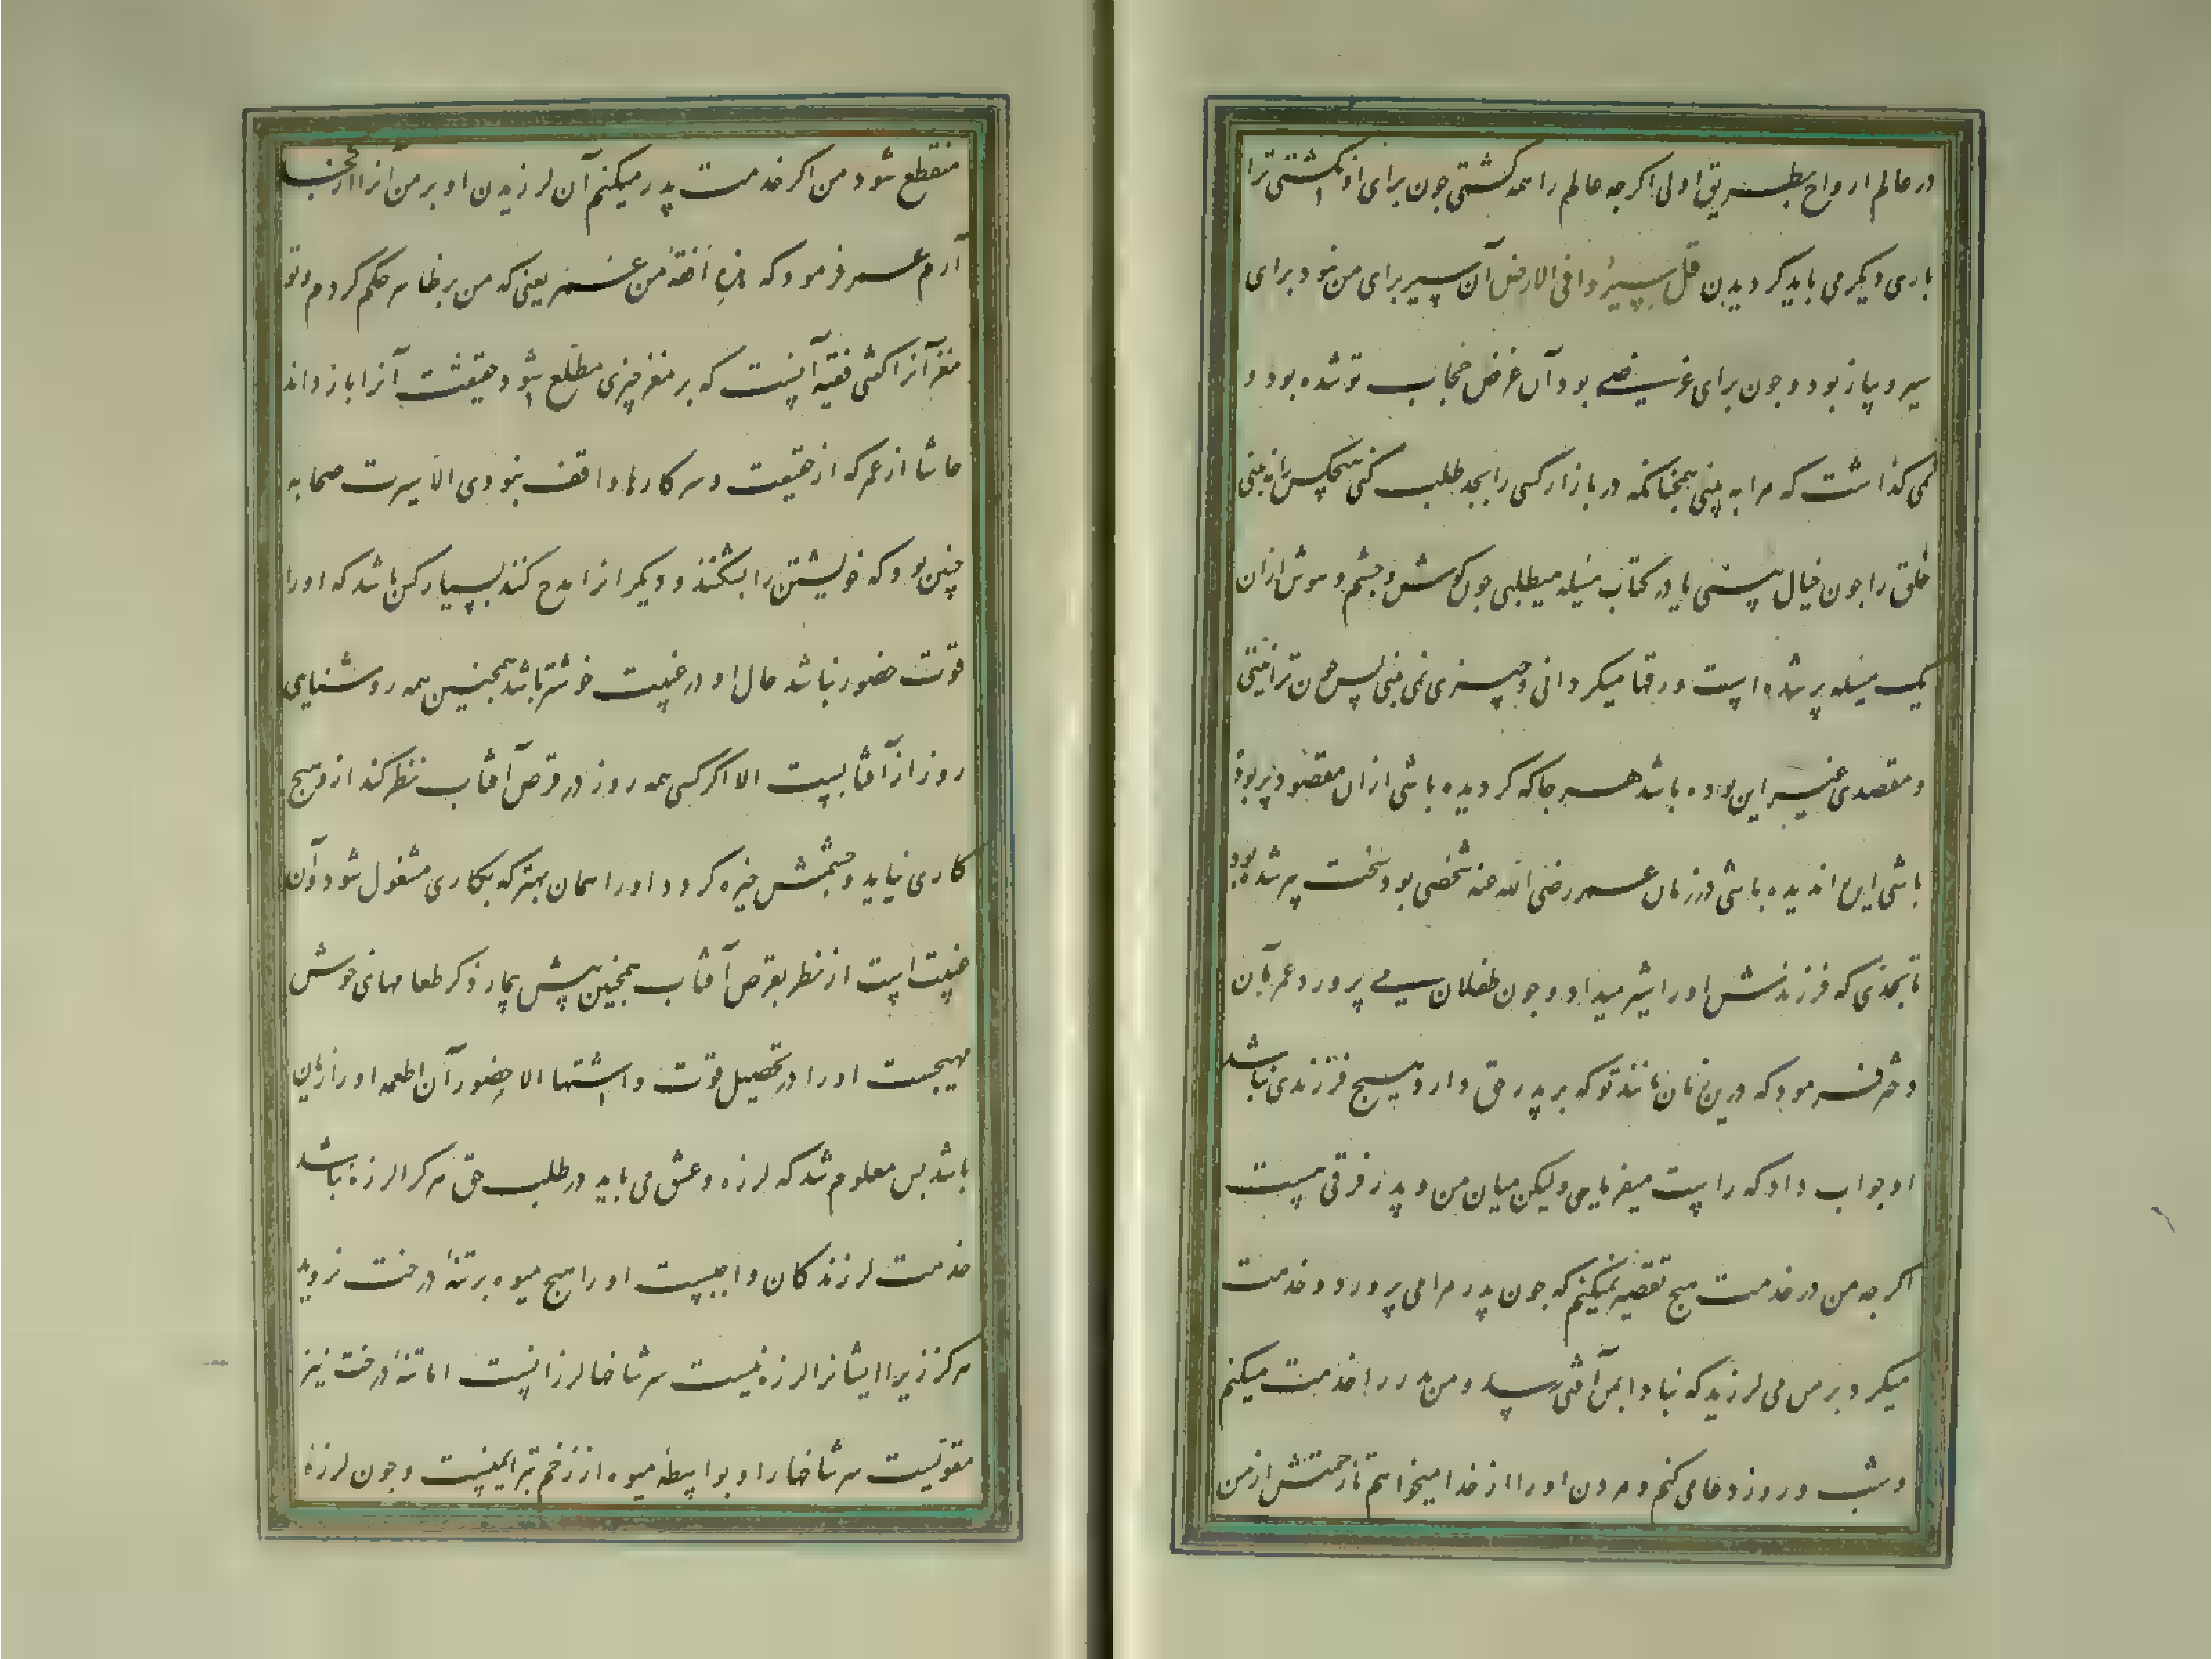 در عالم ارواح بطریق اولی اکرجه عالم را همه کشتی جون برای او نکشتی ترا
باری دیکر می باید کردیدن قل سیروا فی الارض آن سیر برای من نبود برای
سیر و پیاز بود و جون برای غرضی بود آن غرض حجاب تو شده بود و
نمی کذاشت که مرا به بینی همجنانکه در بازار کسی را بجد طلب کنی هیجکس را نه بینی
خلق را جون خیال بینی یا در کتاب مسئله میطلبی جون کوش و چشم و هوش ازان
یک مسئله پر شده است ورقها میکردانی و چیزی نمی بینی پس چون ترا نیتی
و مقصدی غیر این بوده باشد هر جا که کردیده باشی ازان مقصود پر بوده
باشی این را ندیده باشی در زمان عمر رضی الله عنه شخصی بود سخت پیر شده بود
تا بحدی که فرزندش او را شیر میداد و جون طفلان می پرورد عمر بآن
دختر فرمود که درین زمان مانند تو که بر پدر حق دارد هیچ فرزندی نباشد
او جواب داد که راست میفرمایی ولیکن میان من و پدر فرقی هست
اکرجه من در خدمت هیچ تقصیر نمیکنم که جون پدر مرا می پرورد و خدمت
میکرد بر من می لرزید که نبادا بمن آفتی رسد و من پدر را خدمت میکنم
و شب و روز دعا می کنم و مردن او را از خدا میخواهم تا زحمتش از من
منقطع شود من اکر خدمت پدر میکنم آن لرزیدن او بر من آنرا از کجا
آرم عمر فرمود که هذه افقه من عمر یعنی که من بر ظاهر حکم کردم و تو
مغز آنرا کفتی فقیه آنست که بر مغز چیزی مطلع شود حقیقت آنرا باز داند
حاشا از عمر که از حقیقت و سر کارها واقف نبودی الا سیرت صحابه
چنین بود که خویشتن را بشکنند و دیکرانرا مدح کنند بسیار کس باشد که او را
قوت حضور نباشد حال او در غیبت خوشتر باشد همجنین همه روشنایی
روز از آفتابست الا اکر کسی همه روز در قرص آفتاب نظر کند ازو هیچ
کاری نیاید و چشمش خیره کردد او را همان بهتر که بکاری مشغول شود و آن
غیبت است از نظر بقرص آفتاب همجنین پیش بیمار ذکر طعامهای خوش
مهیجست او را در تحصیل قوت و اشتها الا حضور آن اطعمه او را زیان
باشد پس معلوم شد که لرزه و عشق می باید در طلب حق هر کرا لرزه نباشد
خدمت لرزندکان واجبست او را هیچ میوه بر تنهٔ درخت نروید
هرکز زیرا ایشانرا لرزه نیست سر شاخها لرزانست اما تنهٔ درخت نیز
مقویست سر شاخها را و بواسطه میوه از زخم تبر ایمنست و جون لرزهٔ